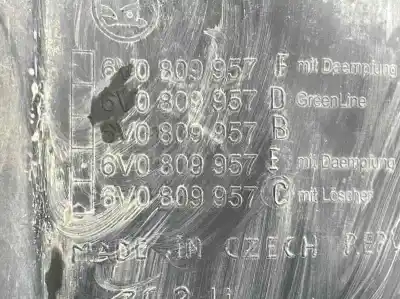 6V0 809 957 F mit Daempfung
6V0 809 957 D GreenLine
6V0 809 957 B
6V0 809 957 E mit Daempfung
6V0 809 957 C mit Löscher
MADE IN CZECH REP